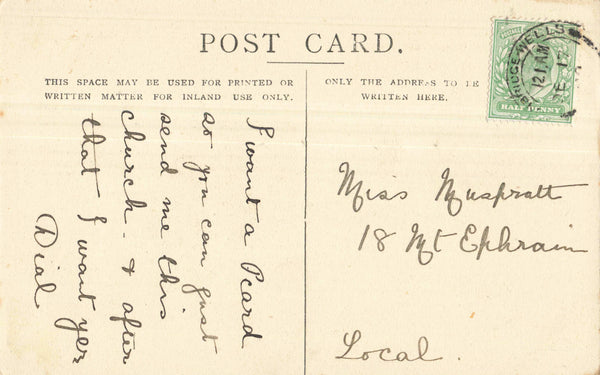 POST CARD.
THIS SPACE MAY BE USED FOR PRINTED OR
WRITTEN MATTER FOR INLAND USE ONLY.
ONLY THE ADDRESS TO BE
WRITTEN HERE.
I want a Pcard
so you can just
send me this
church - & after
that I want yer
Dial
Miss Muspratt
18 Mt Ephraim
Local.
POSTAGE
HALFPENNY
WELLS
12.1 AM